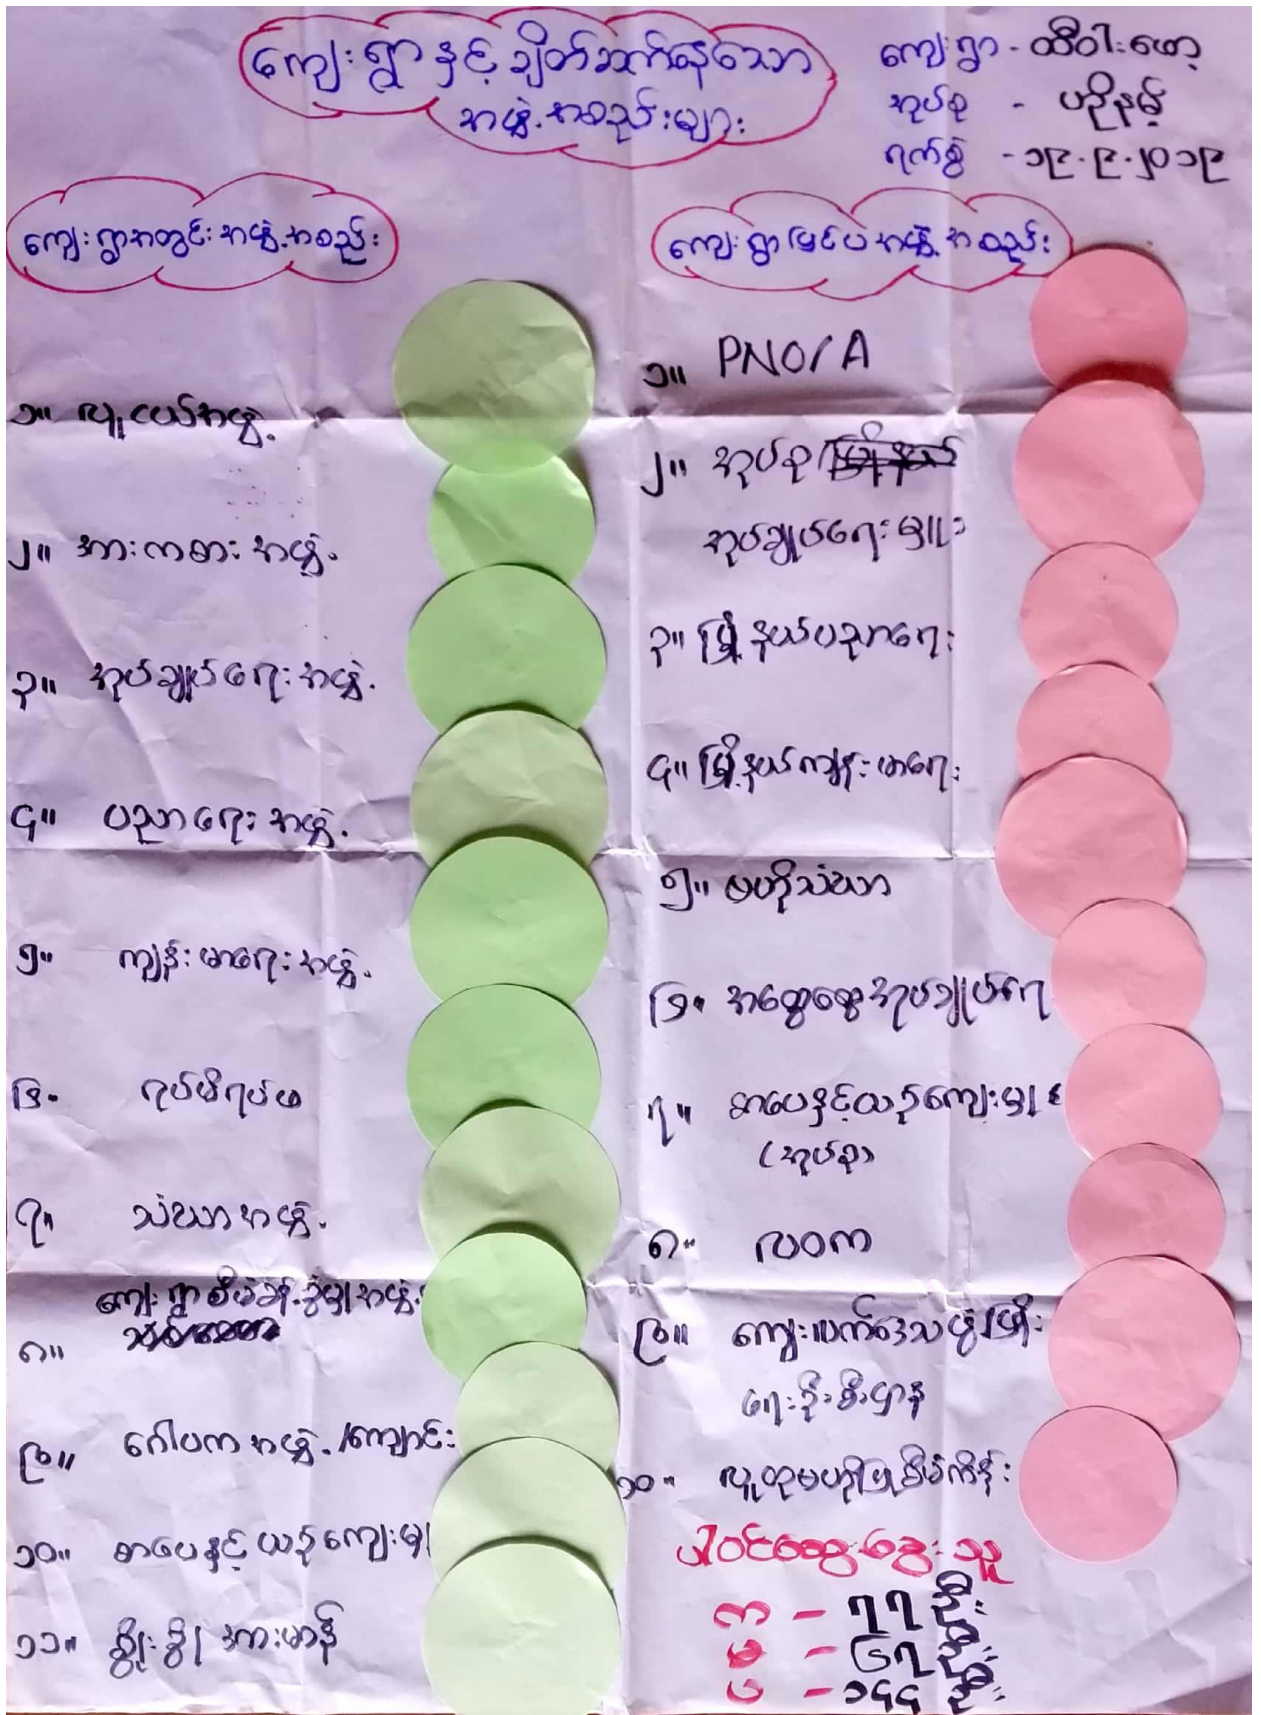 ကျေးရွာနှင့်ချိတ်ဆက်နေသော
အဖွဲ့အစည်းများ
ကျေးရွာ - ထီဝါးဖော့
အုပ်စု -
ရက်စွဲ - ၁၉.၉.၂၀၁၉
ကျေးရွာအတွင်းအဖွဲ့အစည်း
၁။ လူငယ်အဖွဲ့
၂။ အားကစားအဖွဲ့
၃။ အုပ်ချုပ်ရေးအဖွဲ့
၄။ ပညာရေးအဖွဲ့
၅။ ကျန်းမာရေးအဖွဲ့
၆။ ရပ်မိရပ်ဖ
၇။ သံဃာအဖွဲ့
ကျေးရွာစီမံခန့်ခွဲမှုအဖွဲ့
၈။
၉။ ဂေါပကအဖွဲ့/ကျောင်း
၁၀။ စာပေနှင့်ယဉ်ကျေးမှု
၁၁။ စွိုးစွိုအားမာန်
ကျေးရွာပြင်ပအဖွဲ့အစည်း
၁။ PNO/A
၂။ အုပ်စု
အုပ်ချုပ်ရေးမှူး
၃။ မြို့နယ်ပညာရေး
၄။ မြို့နယ်ကျန်းမာရေး
၅။ ဗဟိုသံဃာ
၆။ အထွေထွေအုပ်ချုပ်ရေ
၇။ စာပေနှင့်ယဉ်ကျေးမှု
(အုပ်စု)
၈။ လဝက
၉။ ကျေးလက်ဒေသဖွံ့ဖြိုး
ရေးဦးစီးဌာန
၁၀။ လူထုဗဟိုပြုစီမံကိန်း
ပါဝင်ဆွေးနွေးသူ
က - ၇၇ ဦး
မ - ၆၇ ဦး
ပ - ၁၄၄ ဦး